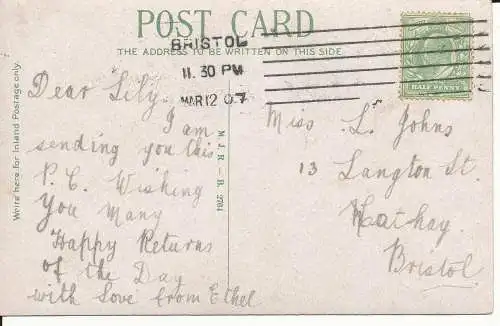 POST CARD
THE ADDRESS TO BE WRITTEN ON THIS SIDE.
BRISTOL
11.30 PM
MAR 12 07
HALF PENNY
Write here for Inland Postage only.
Dear Lily.
I am
sending you this
P.C. Wishing
you Many
Happy Returns
of the Day
with love from Ethel
M.J.R. – B. 2761
Miss L. Johns
13 Langton St.
Cathay.
Bristol.